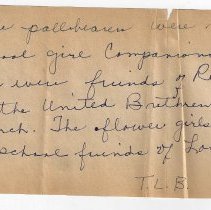 pallbearers were
girl Companions
were friends of R
the United Brethren
The flower girls
school friends of Lo
T.L.B.